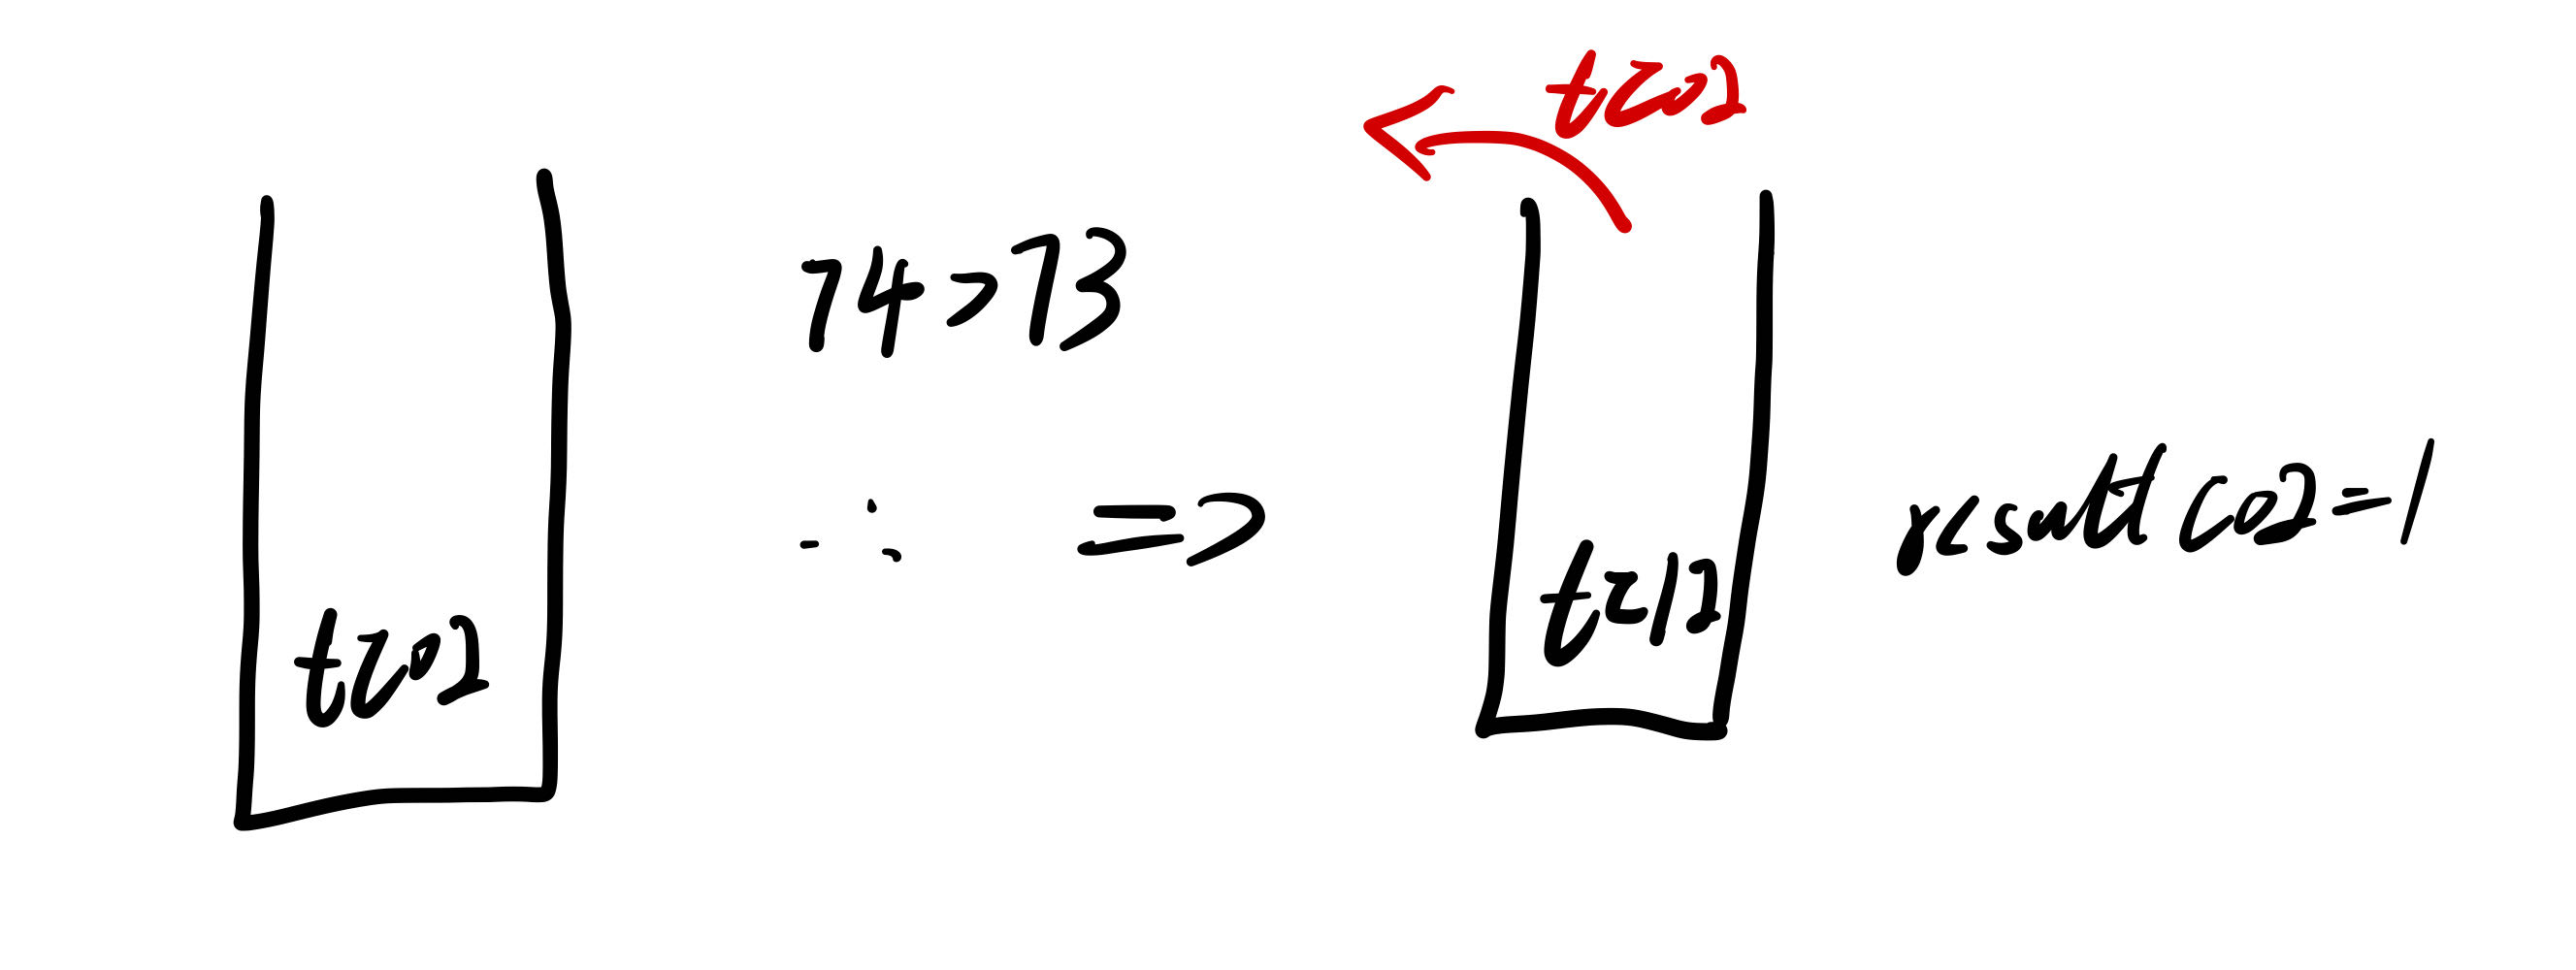 t[0]
74>73
∴ =>
t[0]
t[1]
result[0]=1